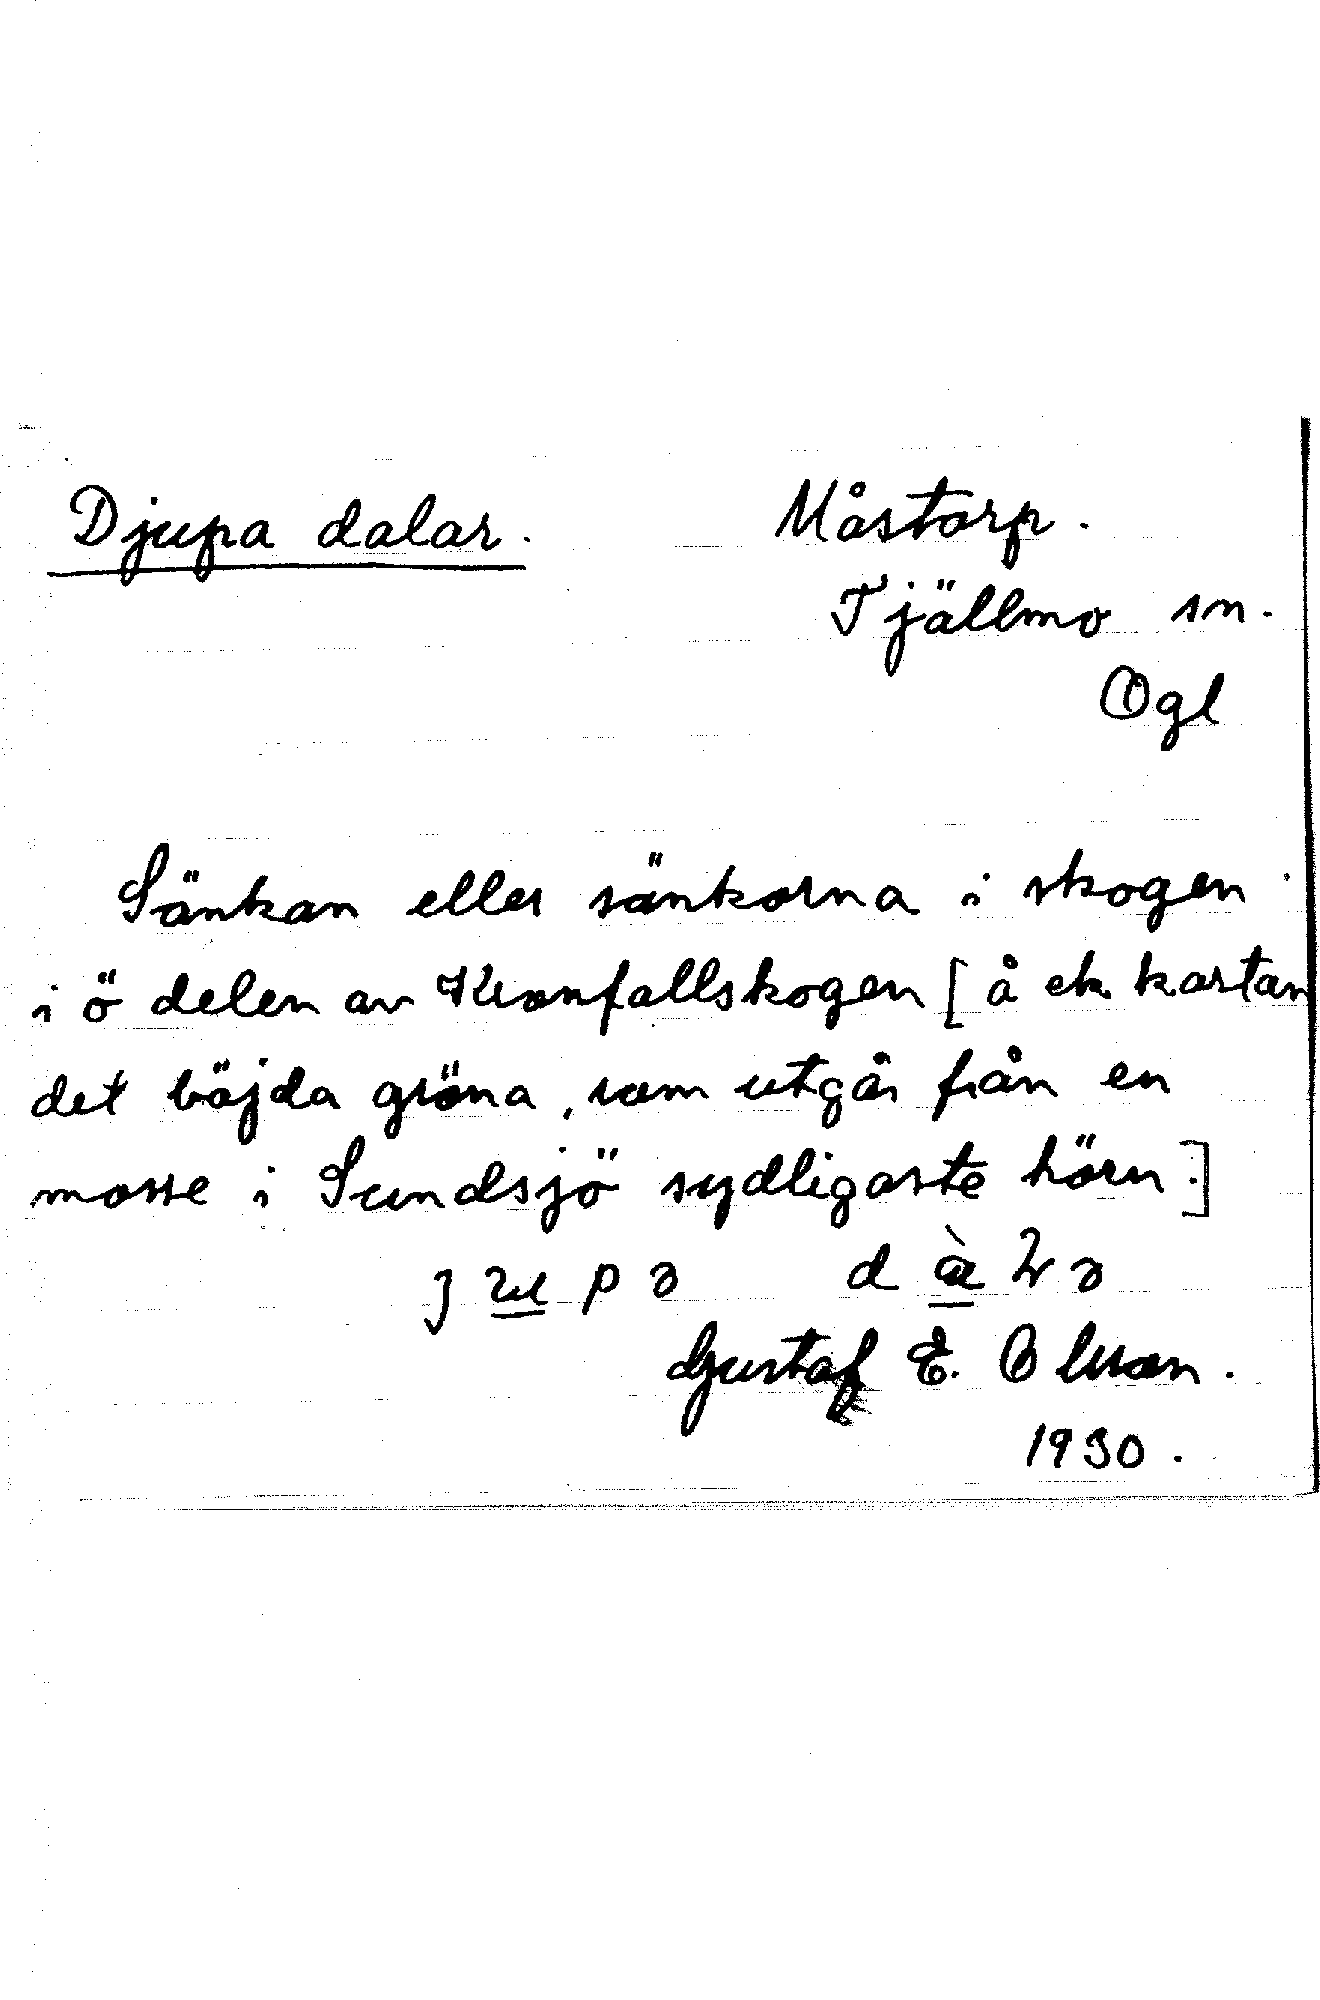 Djupa dalar.
Måstorp.
Tjällmo sn.
Ögl
Sänkan eller sänkorna i skogen
i ö delen av Kvonfallskogen [å ek kartan
det böjda gröna, som utgår från en
mosse i Sundsjö sydligaste hörn.]
Gustaf E. Olsson.
1930.